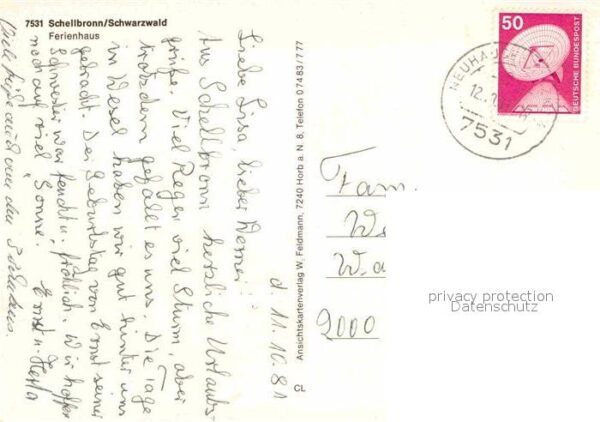 7531 Schellbronn/Schwarzwald
Ferienhaus
d. 11.10.81
Liebe Lisa, lieber Werner!
Aus Schellbronn herzliche Urlaubs-
grüße. Viel Regen viel Sturm, aber
trotzdem gefällt es uns. Die Tage
in Wesel haben wir gut hinter uns
gebracht. Der Geburtstag von Ernst seiner
Schwester war feucht u. fröhlich. Wir hoffen
noch auf viel Sonne.
Ernst u. Herta
Viele Grüße auch von den
Ansichtskartenverlag W. Feldmann, 7240 Horb a. N. 8, Telefon 07483/777
CL
50
DEUTSCHE BUNDESPOST
NEUHAU
12.
7531
Fam.
W
Wa
2000
privacy protection
Datenschutz